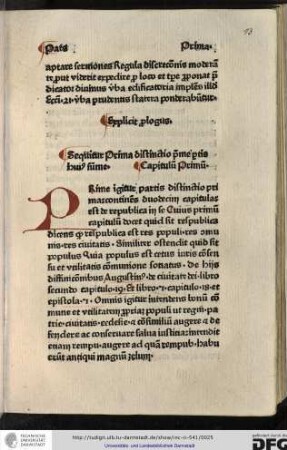 Pars Prima.
13
aptare sermones Regula discretiõnis moderã
te put viderit expedire p loco et tpe pponat p̃
dicator diuinus v̄ba edificatoria implens illd
Ecc̄i · 21 · v̄ba prudentis statera ponderabũtur.
Explicit plogus.
Sequitur Prima distinctio p̄me ptis
huiꝰ sũme. Capitulũ Primũ
Prime igitur partis distinctio pri
ma continens duodecim capitulas
est de republica in se Cuius primũ
capitulũ docet quid sit respublica
dicens ꝙ respublica est res populi · res om
nis · res ciuitatis · Similiter ostendit quid sit
populus Quia populus est cetus iuris cōsen
su et vtilitatis cōmunione sociatus · de hijs
diffinicōnibus Augustinꝰ de ciuitate dei · libro
secundo capitulo · 19 · Et libro · 1 · capitulo · 18 · et
epistola · 5 · Omnis igitur intendens bonū cō
mune et vtilitatem pprij populi ut regni · pa
trie · ciuitatis · ecclesie · et cōsimiliũ augere et de
fendere ac conseruare salua iusticia · intendit
etiam rempu · augere ad quā rempub · habu
erunt antiqui magnũ zelum ·
http://tudigit.ulb.tu-darmstadt.de/show/inc-iii-541/0025
Universitäts- und Landesbibliothek Darmstadt
TECHNISCHE UNIVERSITÄT DARMSTADT
DFG